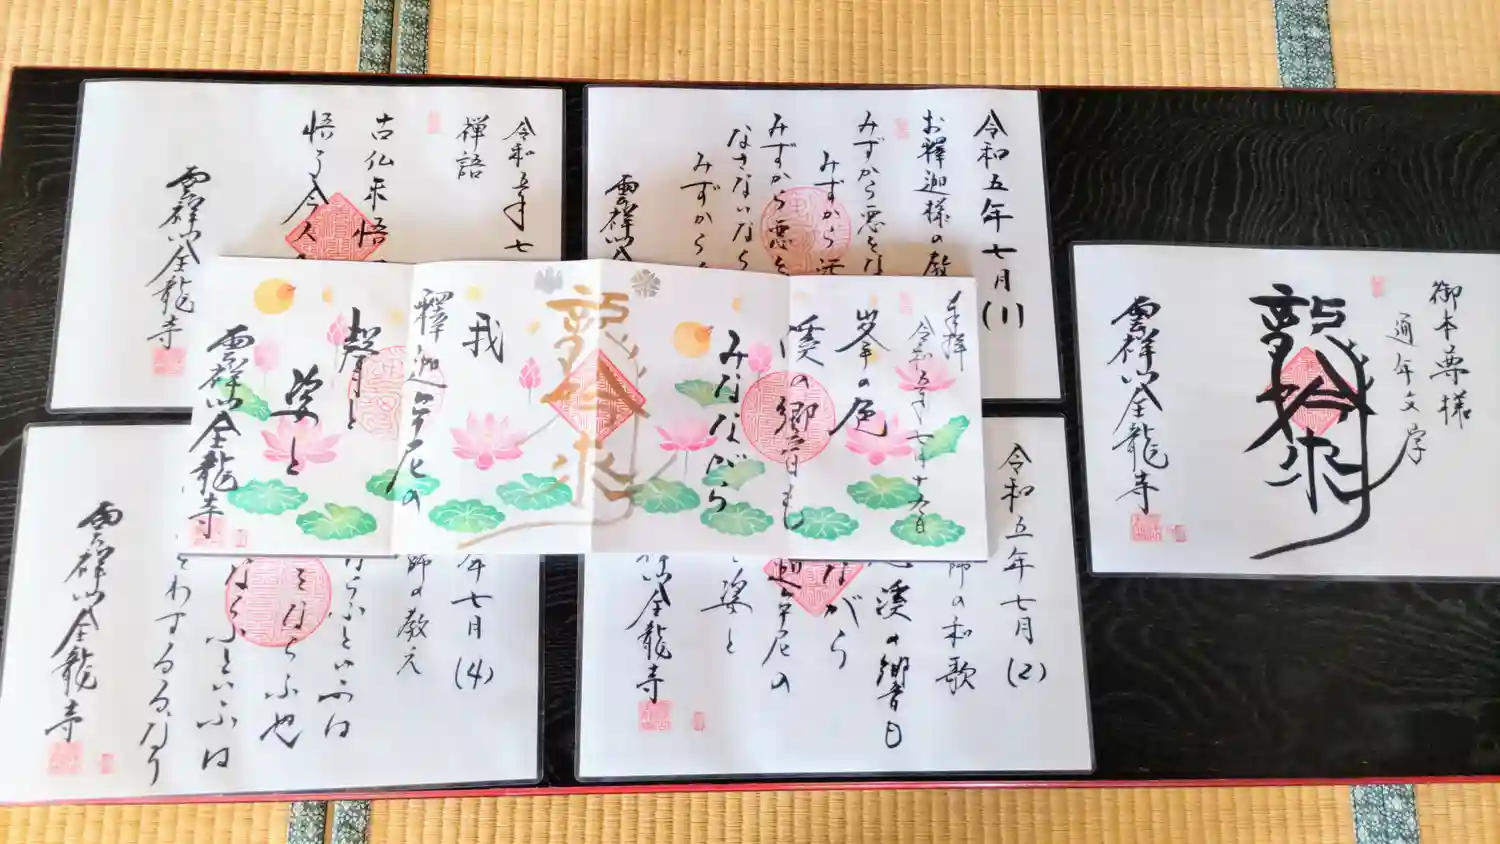 令和五年七
禅語
古仏未悟
悟了今人
雲祥山全龍寺
令和五年七月(1)
お釋迦様の教
みずから悪をな
みずから
みずから悪を
なさないなら
みずから
雲祥山全
御本尊様
通年文字
雲祥山全龍寺
奉拝
令和五年七月十六日
峯の色
溪の響も
みなながら
我
釋迦牟尼の
聲と
姿と
雲祥山全龍寺
年七月(4)
師の教え
ならふといふは
をならふ也
ならふといふは
をわするるなり
雲祥山全龍寺
令和五年七月(2)
師の和歌
溪の響も
ながら
迦牟尼の
と姿と
祥山全龍寺